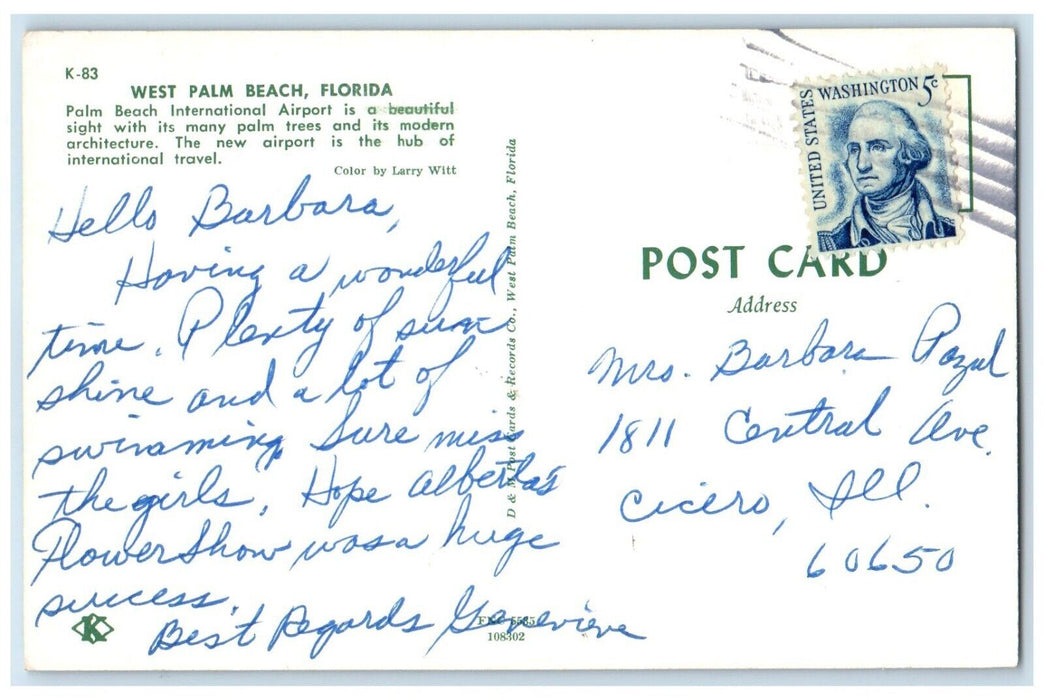 K-83
WEST PALM BEACH, FLORIDA
Palm Beach International Airport is a beautiful
sight with its many palm trees and its modern
architecture. The new airport is the hub of
international travel.
Color by Larry Witt
Hello Barbara,
Having a wonderful
time. Plenty of sun
shine and a lot of
swimming. Sure miss
the girls. Hope Alberta's
Flower Show was a huge
success.
Best Regards Genevieve
K
108302
D & M Post Cards & Records Co., West Palm Beach, Florida
UNITED STATES
WASHINGTON 5c
POST CARD
Address
Mrs. Barbara Pazul
1811 Central Ave.
Cicero, Ill.
60650